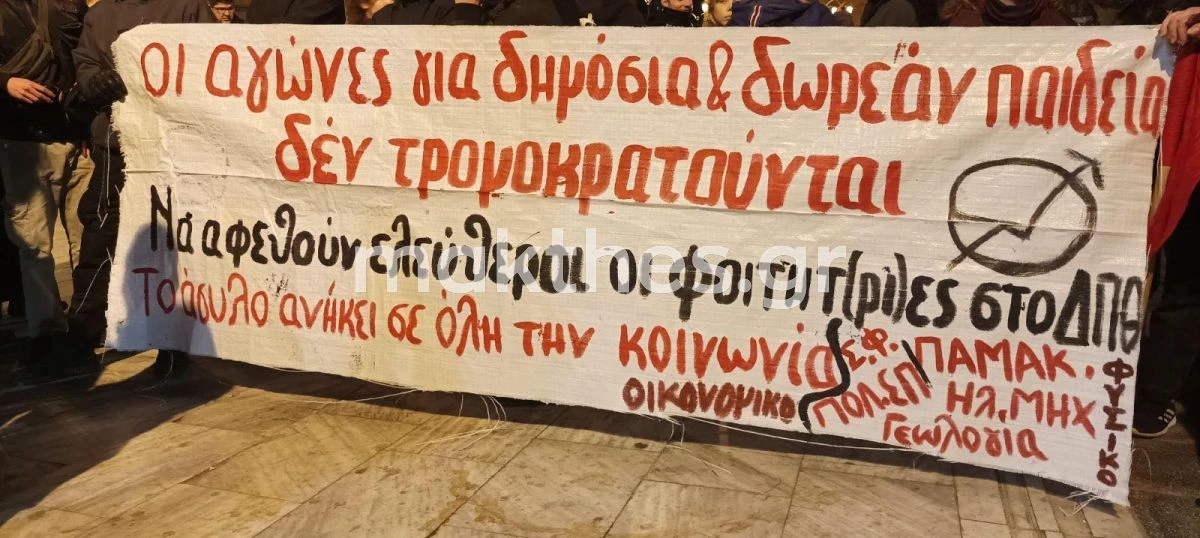 Οι αγώνες για δημόσια & δωρεάν παιδεία
δέν τρομοκρατούνται
Νά αφεθούν ελεύθεροι οι φοιτητ(ρι)ες στο ΔΠΘ
Το άσυλο ανήκει σε όλη την κοινωνία
Σ.Φ. ΠΑΜΑΚ.
ΟΙΚΟΝΟΜΙΚΟ
ΠΟΛ.ΕΠ
ΗΛ.ΜΗΧ
Γεωλογία
ΦΥΣΙΚΟ
makthes.gr